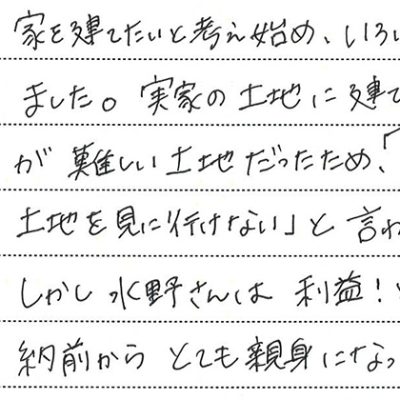 家を建てたいと考え始め、いろい
ました。実家の土地に建て
が難しい土地だったため、「
土地を見に行けない」と言わ
しかし水野さんは 利益！
納前から とても親身になっ